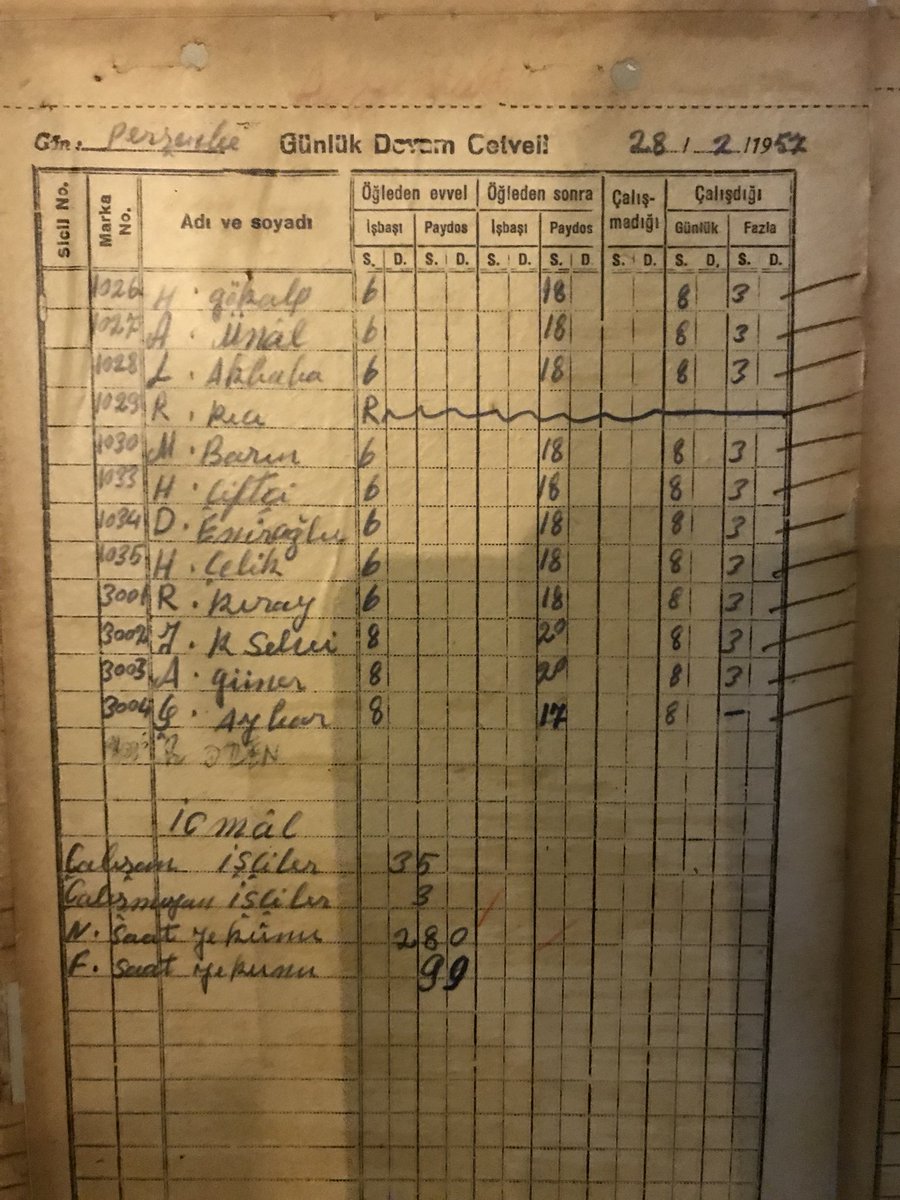 Gün: Perşembe Günlük Devam Cetveli 28 / 2 / 1957
Sicil No. Marka No. Adı ve soyadı Öğleden evvel Öğleden sonra Çalışmadığı Çalışdığı
İşbaşı Paydos İşbaşı Paydos Günlük Fazla
S. D. S. D. S. D. S. D. S. D. S. D. S. D.
1026 H. Gökalp 6 18 8 3
1027 A. Ünal 6 18 8 3
1028 L. Akbaba 6 18 8 3
1029 R. R
1030 M. Barın 6 18 8 3
1033 H. Çiftçi 6 18 8 3
1034 D. Emiroğlu 6 18 8 3
1035 H. Çelik 6 18 8 3
3001 R. Kıray 6 18 8 3
3002 K Selvi 8 20 8 3
3003 A. Güner 8 20 8 3
3004 Aybar 8 17 8 —
İcmâl
Çalışan İşçiler 35
Çalışmayan İşçiler 3
N. Saat yekûnu 280
F. Saat yekunu 99